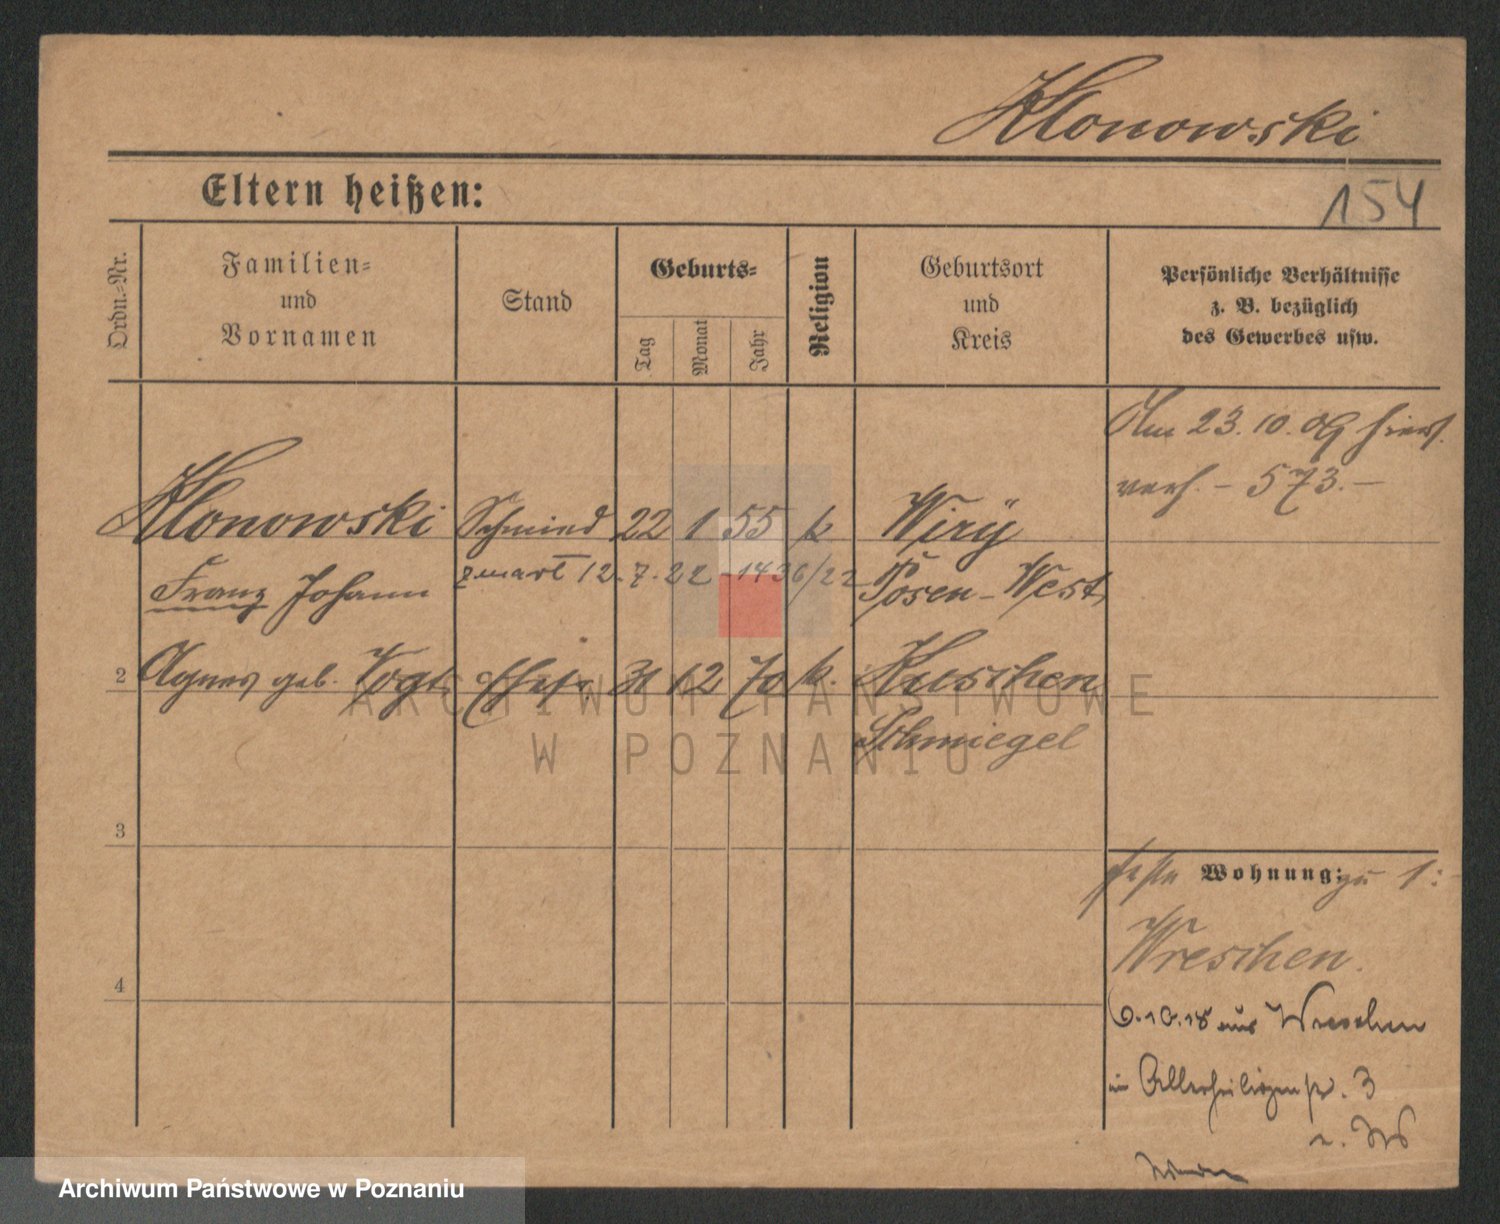 Klonowski
Eltern heißen:
154
Ordn.-Nr.
Familien- und Vornamen
Stand
Geburts-
Tag
Monat
Jahr
Religion
Geburtsort und Kreis
Persönliche Verhältnisse
z. B. bezüglich
des Gewerbes usw.
Am 23.10.09 hier
verh – 573.–
Klonowski Schmied 22 1 55 k Wiry
Franz Johann zmarł 12.7.22 1436/22 Posen-West
2 Agnes geb. Vogt Ehefr. 31 12 70 k. Kuschen
Schmiegel
3
4
Wohnung: zu 1:
Wreschen.
6.10.18 aus Wreschen
in Allerheiligenstr. 3
ARCHIWUM PAŃSTWOWE
W POZNANIU
Archiwum Państwowe w Poznaniu